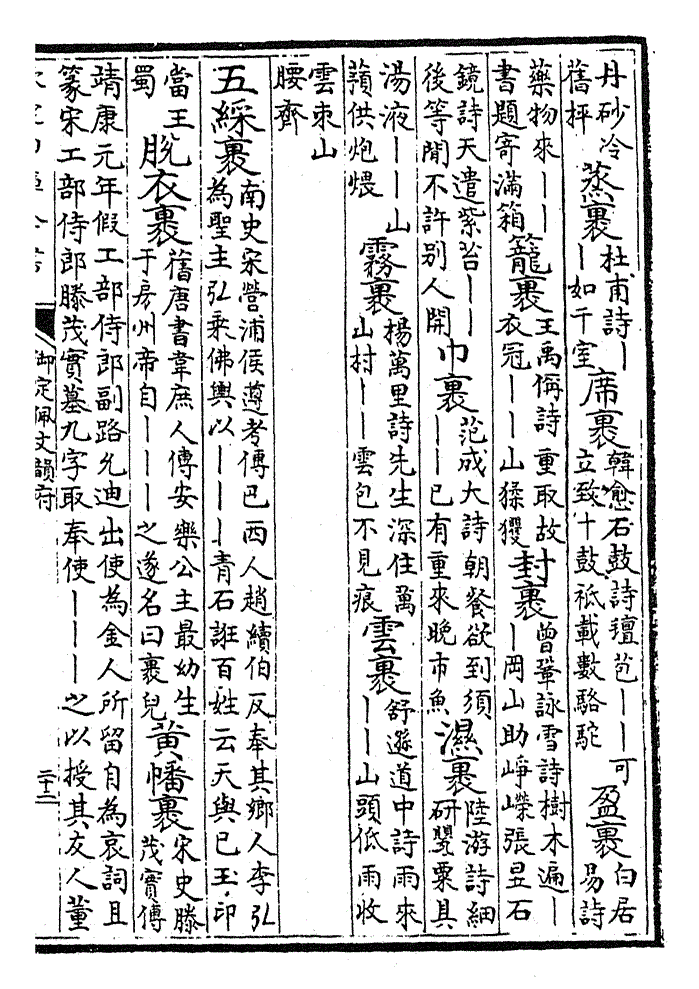 丹砂冷
舊抨
蒸裹
杜甫詩—
—如千室
席裹
韓愈石鼓詩氊苞——可
立致十鼓祗載數駱駝
盈裹
白居
易詩
藥物來——
書題寄滿箱
籠裹
王禹偁詩重取故
衣冠——山猱玃
封裹
曾鞏詠雪詩樹木遍—
—岡山助崢嶸張昱石
鏡詩天遣紫苔——
後等閒不許別人開
巾裹
范成大詩朝餐欲到須
——已有重來晚市魚
濕裹
陸游詩細
研罌粟具
湯液——山
蕷供炮煨
霧裹
楊萬里詩先生深住萬
山村——雲包不見痕
雲裹
舒遜道中詩雨來
——山頭低雨收
雲束山
腰齊
五綵裹
南史宋營浦侯遵考傳巴西人趙續伯反奉其鄉人李弘
為聖主弘乘佛輿以———青石誑百姓云天與己玉印
當王
蜀
脫衣裹
舊唐書韋庶人傳安樂公主最幼生
于房州帝自———之遂名曰裹兒
黃幡裹
宋史滕
茂實傳
靖康元年假工部侍郎副路允迪出使為金人所留自為哀詞且
篆宋工部侍郎滕茂實墓九字取奉使———之以授其友人董
御定佩文韻府
二十二